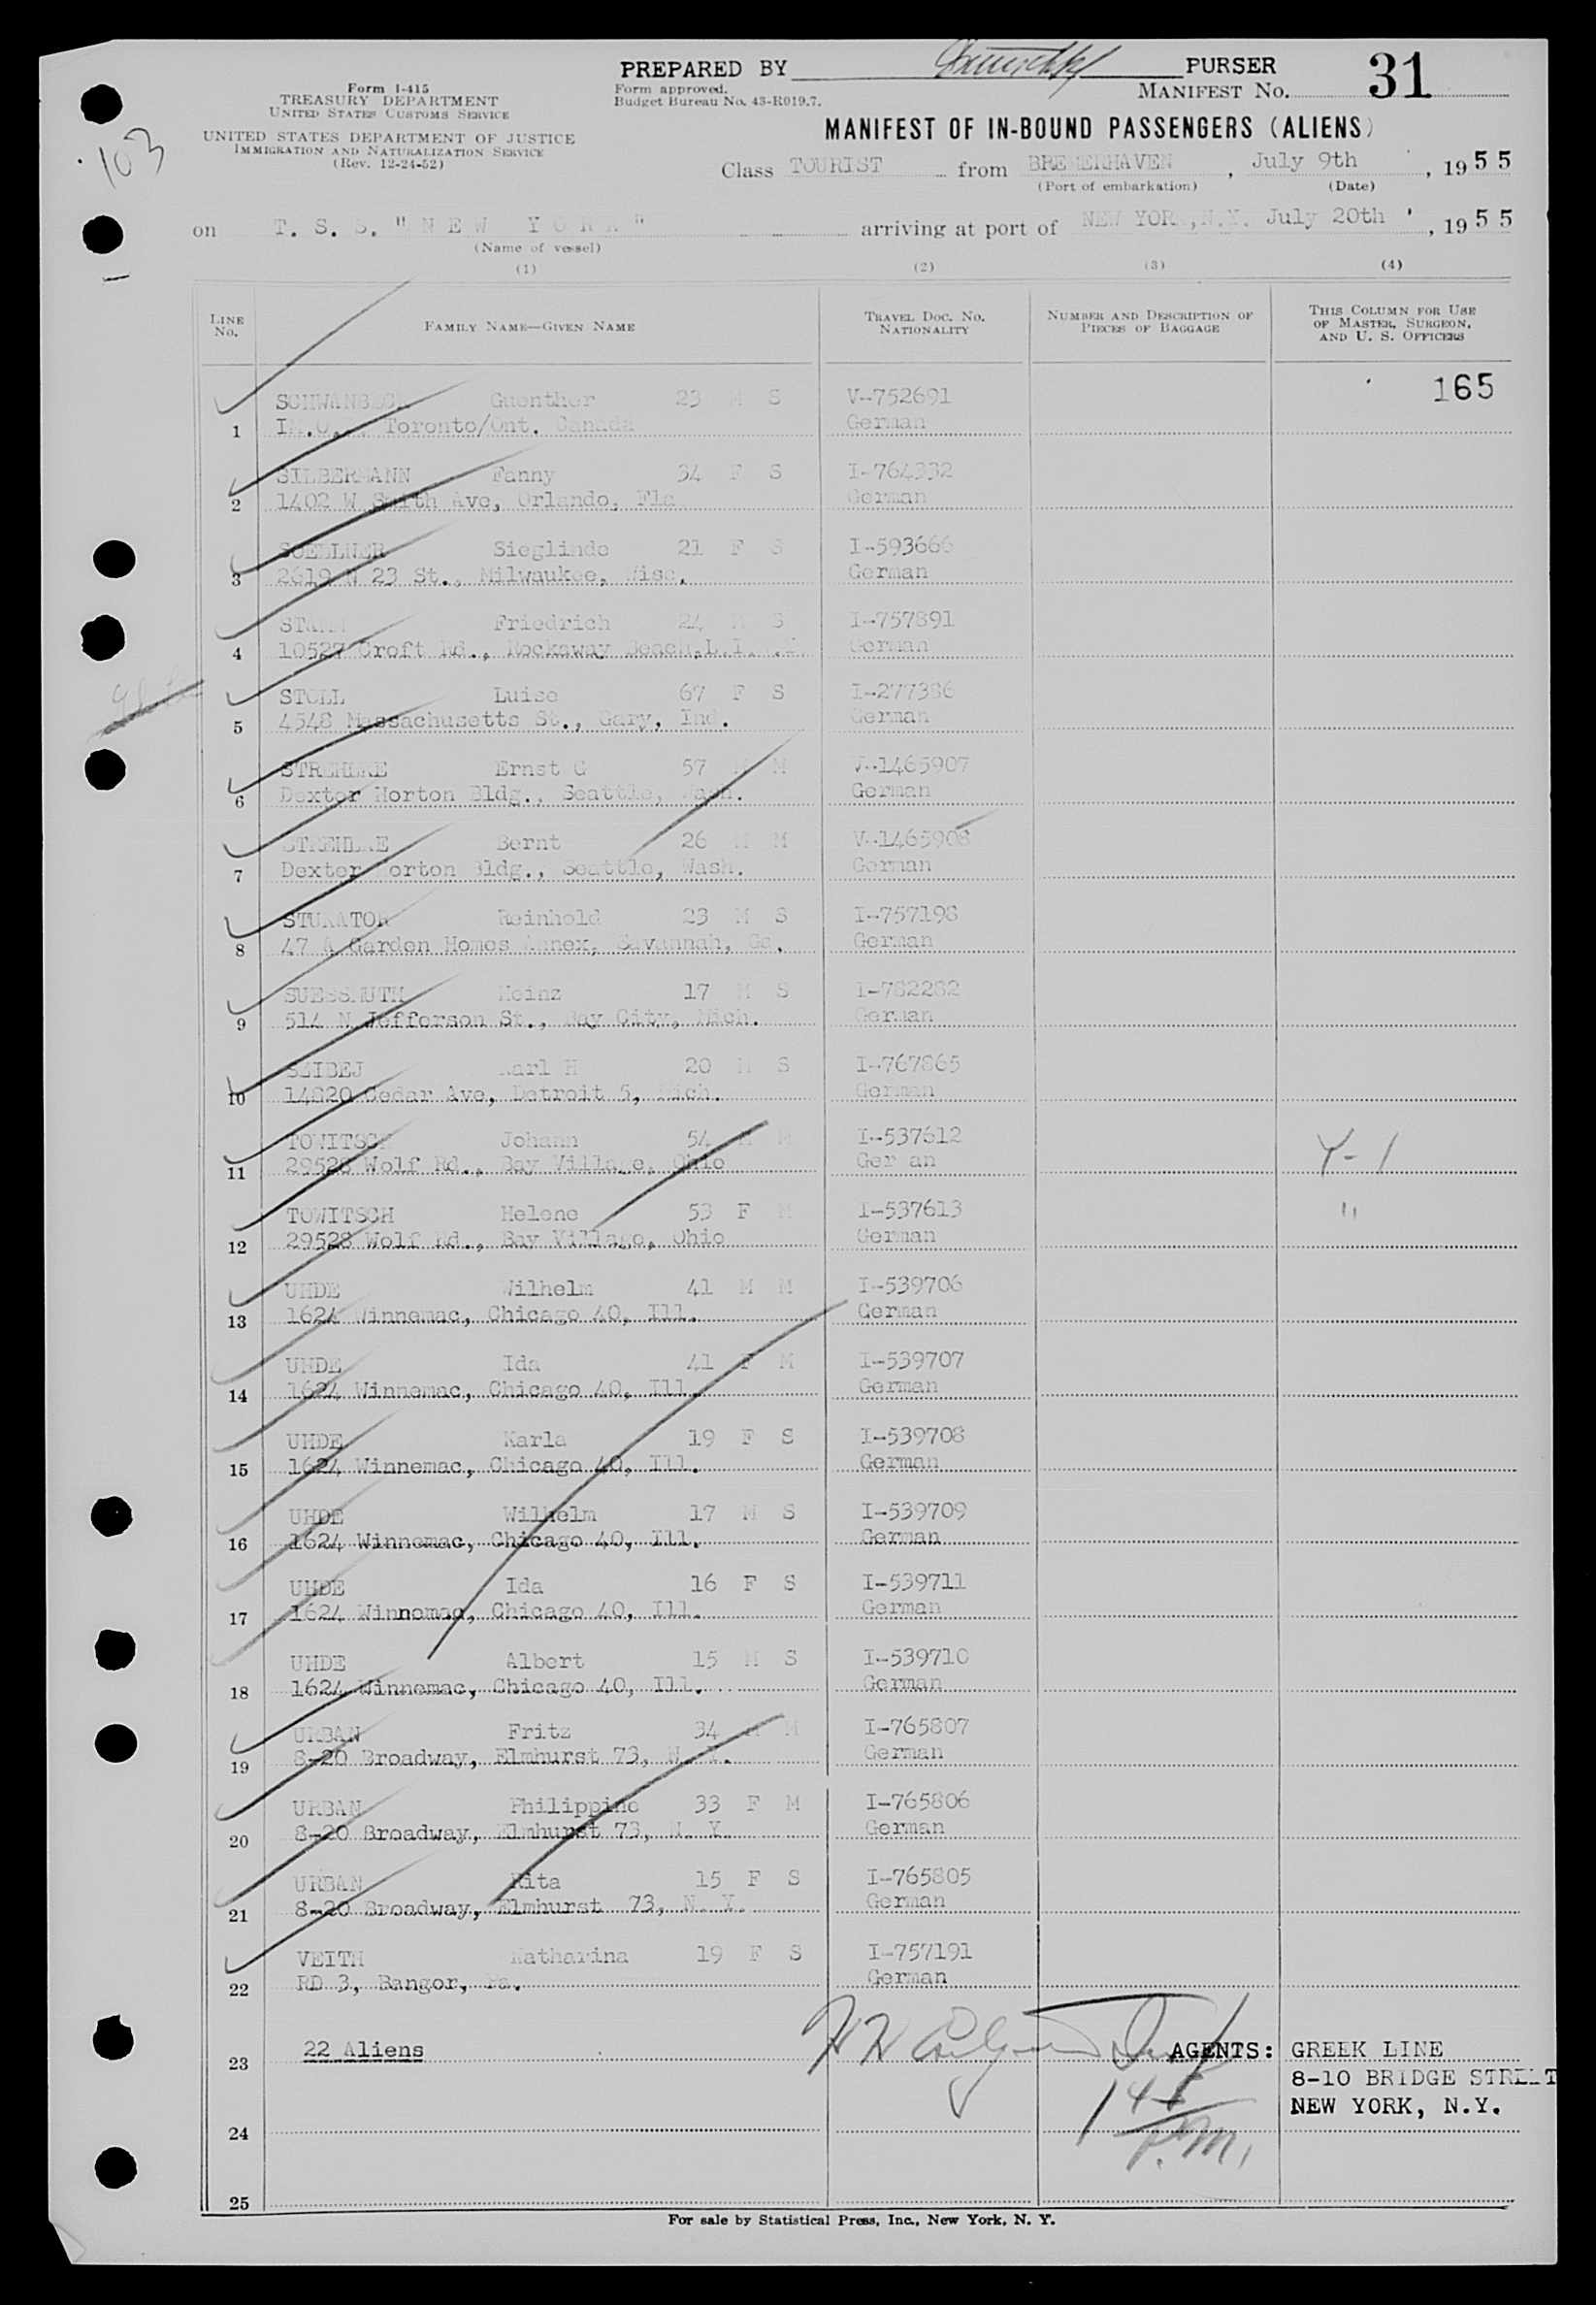 PREPARED BY PURSER
Form I-415
TREASURY DEPARTMENT
UNITED STATES CUSTOMS SERVICE
UNITED STATES DEPARTMENT OF JUSTICE
IMMIGRATION AND NATURALIZATION SERVICE
(Rev. 12-24-52)
Form approved.
Budget Bureau No. 43-R019.7.
MANIFEST No. 31
103
MANIFEST OF IN-BOUND PASSENGERS (ALIENS)
Class TOURIST from BREMERHAVEN, July 9th, 1955
(Port of embarkation) (Date)
on T. S. S. "NEW YORK" arriving at port of NEW YORK, N.Y. July 20th, 1955
(Name of vessel)
(1) (2) (3) (4)
LINE No. FAMILY NAME—GIVEN NAME TRAVEL DOC. No. NATIONALITY NUMBER AND DESCRIPTION OF PIECES OF BAGGAGE THIS COLUMN FOR USE OF MASTER, SURGEON, AND U. S. OFFICERS
165
SCHWANBECK Guenther 23 M S V-752691
1 Toronto/Ont. Canada German
SILBERMANN Fanny 34 F S I-764332
2 1402 W Smith Ave, Orlando, Fla German
SOELLNER Sieglinde 21 F S I-593666
3 2619 N 23 St., Milwaukee, Wisc. German
Friedrich 24 M S I-757891
4 10527 Croft Rd., Rockaway Beach, L.I. German
STOLL Luise 67 F S I-277386
5 4548 Massachusetts St., Gary, Ind. German
STREHLKE Ernst G 57 M M V-1465907
6 Dexter Horton Bldg., Seattle, Wash. German
STREHLKE Bernt 26 M M V-1465908
7 Dexter Horton Bldg., Seattle, Wash. German
STUKATOR Reinhold 23 M S I-757198
8 47 A Garden Homes Annex, Savannah, Ga. German
SUESSMUTH Heinz 17 M S I-782282
9 514 N Jefferson St., Bay City, Mich. German
SZIBEJ Karl H 20 M S I-767865
10 14820 Cedar Ave, Detroit 5, Mich. German
TOWITSCH Johann 54 M M I-537612
11 29528 Wolf Rd., Bay Village, Ohio German Y-1
TOWITSCH Helene 53 F M I-537613 "
12 29528 Wolf Rd., Bay Village, Ohio German
UHDE Wilhelm 41 M M I-539706
13 1624 Winnemac, Chicago 40, Ill. German
UHDE Ida 41 F M I-539707
14 1624 Winnemac, Chicago 40, Ill. German
UHDE Karla 19 F S I-539708
15 1624 Winnemac, Chicago 40, Ill. German
UHDE Wilhelm 17 M S I-539709
16 1624 Winnemac, Chicago 40, Ill. German
UHDE Ida 16 F S I-539711
17 1624 Winnemac, Chicago 40, Ill. German
UHDE Albert 15 M S I-539710
18 1624 Winnemac, Chicago 40, Ill. German
URBAN Fritz 34 M M I-765807
19 8-20 Broadway, Elmhurst 73, N. Y. German
URBAN Philippine 33 F M I-765806
20 8-20 Broadway, Elmhurst 73, N. Y. German
URBAN Rita 15 F S I-765805
21 8-20 Broadway, Elmhurst 73, N. Y. German
VEITH Katharina 19 F S I-757191
22 RD 3, Bangor, Pa. German
23 22 Aliens AGENTS: GREEK LINE
8-10 BRIDGE STREET
NEW YORK, N.Y.
24
P.M.
25
For sale by Statistical Press, Inc., New York, N. Y.